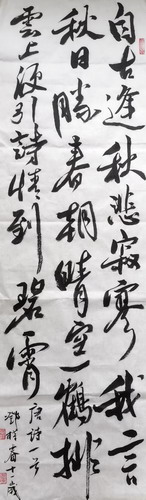 自古逢秋悲寂寥我言
秋日勝春朝晴空一鶴排
雲上便引詩情到碧霄
唐詩一首